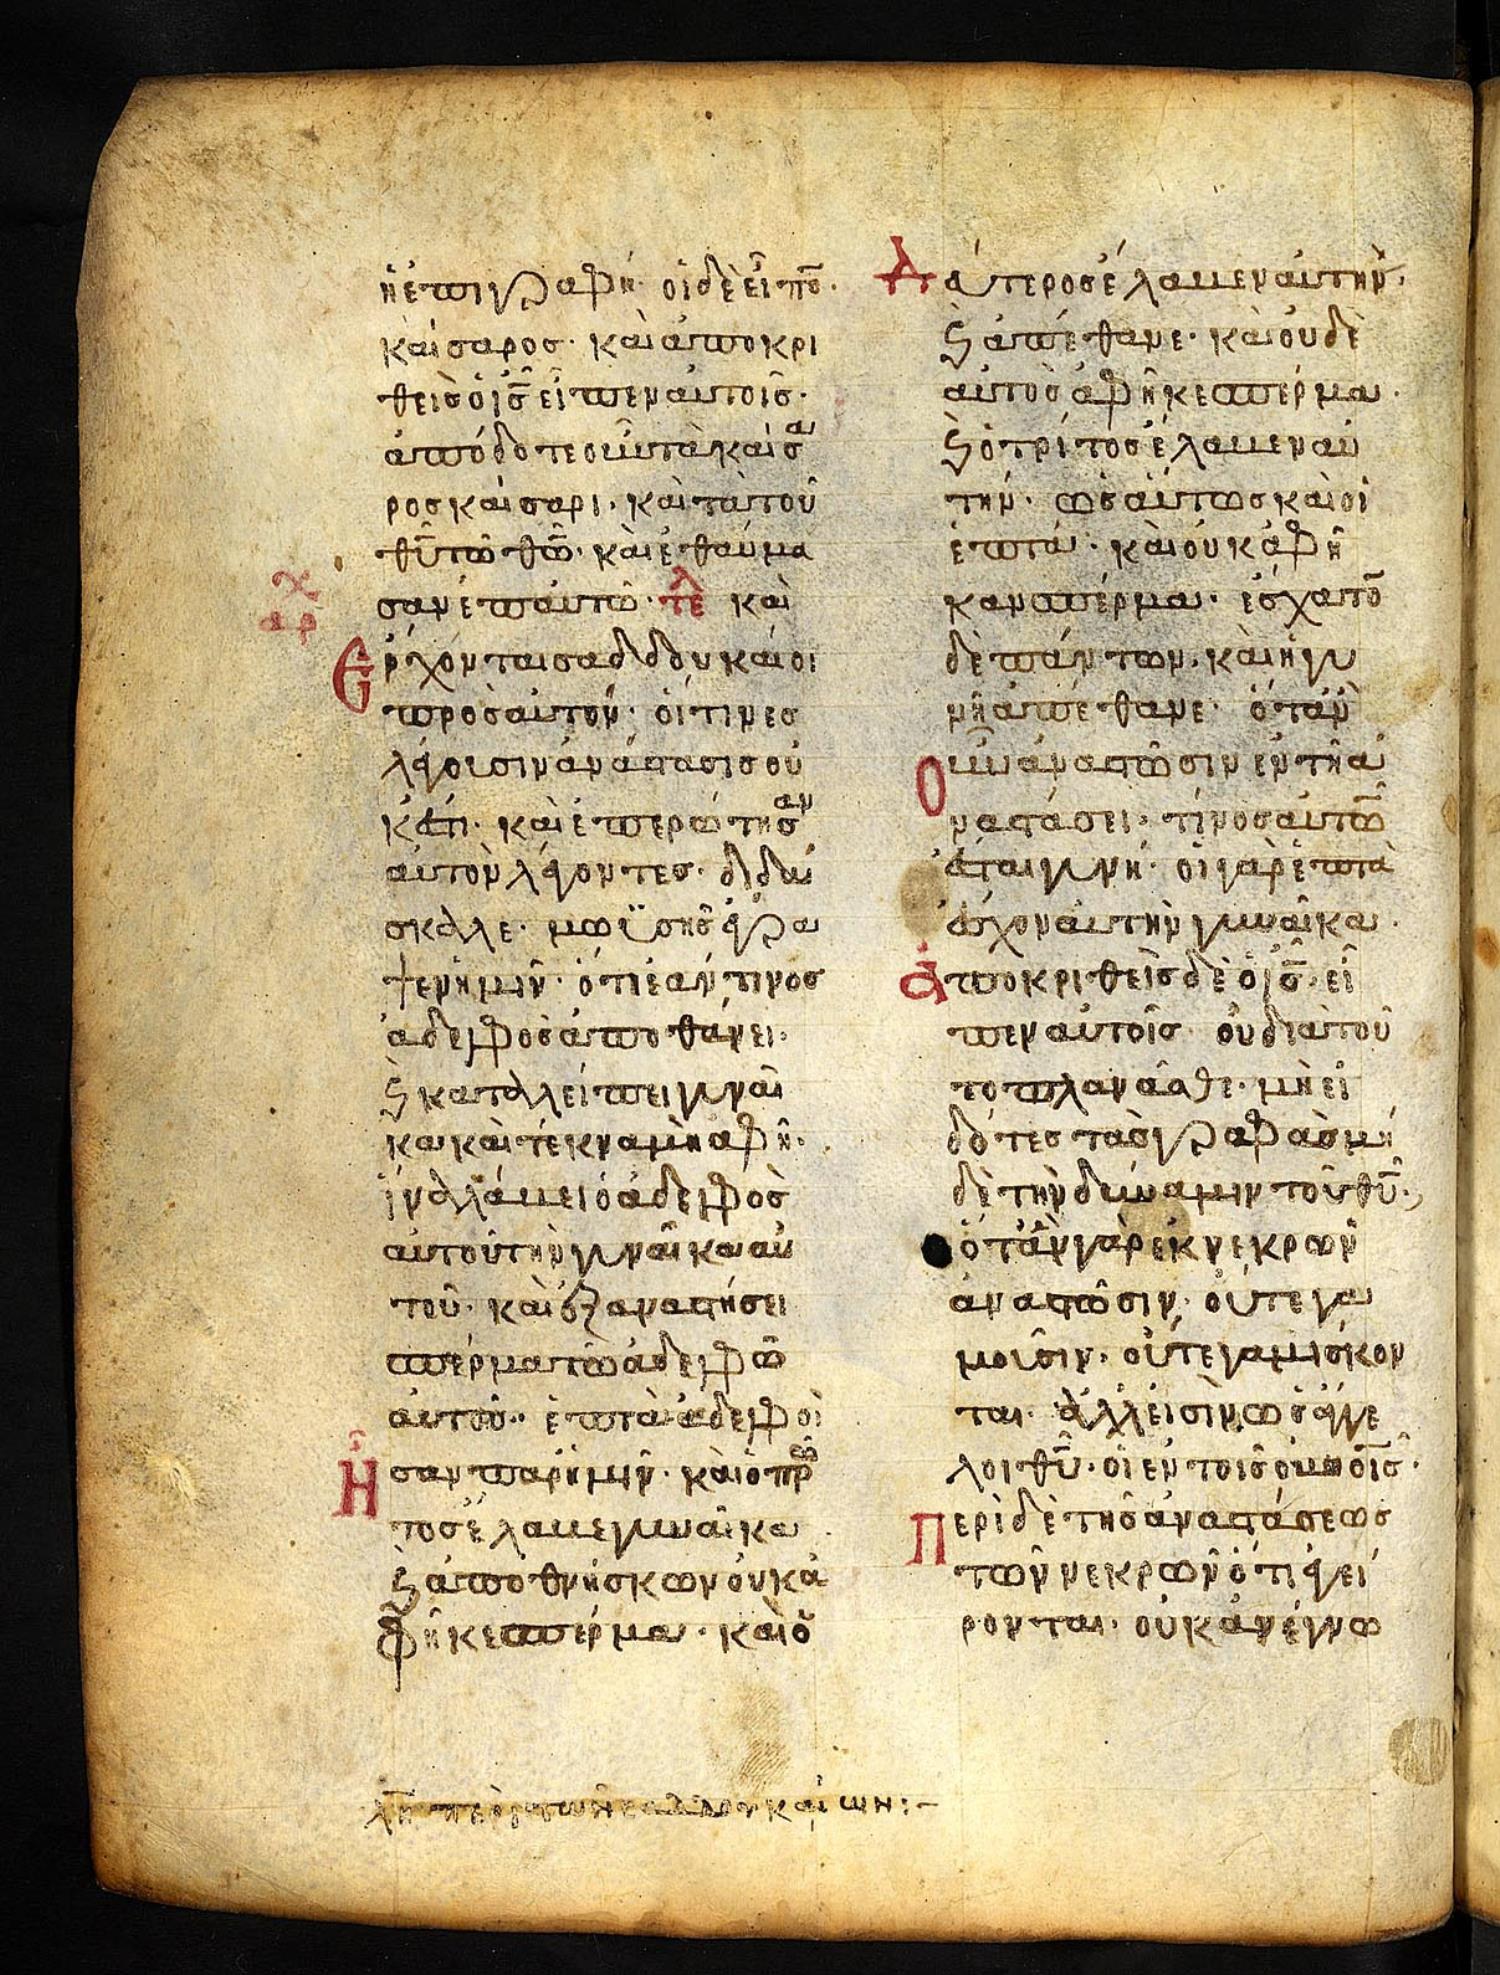 ἡ ἐπιγραφή· οἱ δὲ εἶπο̄·
καίσαρος· καὶ ἀποκρι
θεὶς ὁ ις̄ εἶπεν αὐτοῖς·
ἀπόδοτε οὖν τὰ καίσα
ρος καίσαρι· καὶ τὰ τοῦ
θῡ τῶ θω̄· καὶ ἐθαύμα
σαν ἐπ αὐτῶ· τελ καὶ
χ
αρ
Ἔρχονται σαδδουκαῖοι
πρὸς αὐτὸν· οἵτινες
λέγουσιν ἀνάστασις οὐ
κ ἔστι· καὶ ἐπερώτησαν
αὐτὸν λέγοντες· διδά
σκαλε· μωϋσῆς ἔγρα
ψεν ἡμῖν· ὅτι ἐάν τινος
ἀδελφὸς ἀποθάνει·
ϗ καταλλείπει γυναῖ
κα καὶ τέκνα μὴ ἀφῆ·
ἵνα λάβει ὁ ἀδελφὸς
αὐτοῦ τὴν γυναῖκα αὐ
τοῦ· καὶ ἐξαναστήσει
σπέρμα τῶ ἀδελφῶ
αὐτοῦ· ἑπτὰ ἀδελφοὶ
Ἦσαν παρ ἡμῖν· καὶ ὁ πρῶ
τος ἔλαβε γυναῖκα
ϗ ἀποθνήσκων οὐκ ἀ
φῆκε σπέρμα· καὶ ὁ
Δεύτερος ἔλαβεν αὐτὴν·
ϗ ἀπέθανε· καὶ οὐδὲ
αὐτὸς ἀφῆκε σπέρμα·
ϗ ὁ τρίτος ἔλαβεν αὐ
τήν· ὡσαύτως καὶ οἱ
ἑπτά· καὶ οὐκ ἀφῆ
καν σπέρμα· ἐσχάτο̄
δὲ πάντων· καὶ ἡ γυ
νὴ ἀπέθανε· ὅταν
Οὖν ἀναστῶσιν ἐν τῆ ἀ
ναστάσει· τίνος αὐτω̄
ἔσται γυνή· οἱ γὰρ ἑπτὰ
ἔσχον αὐτὴν γυναῖκα·
Ἀποκριθεὶς δὲ ὁ ις̄· εἶ
πεν αὐτοῖς οὐ διὰ τοῦ
το πλανᾶσθε· μὴ εἰ
δότες τὰς γραφὰς μή
δὲ τὴν δύναμιν τοῦ θῡ·
ὅταν γὰρ ἐκ νεκρῶν
ἀναστῶσιν· οὔτε γα
μοῦσιν· οὔτε γαμίσκον
ται· ἀλλ εἰσὶν ὡς ἄγγε
λοι θῡ· οἱ ἐν τοῖς οὐνοῖς·
Περὶ δὲ τῆς ἀναστάσεως
τῶν νεκρῶν ὅτι ἐγεί
ρονται· οὐκ ἀνέγνω